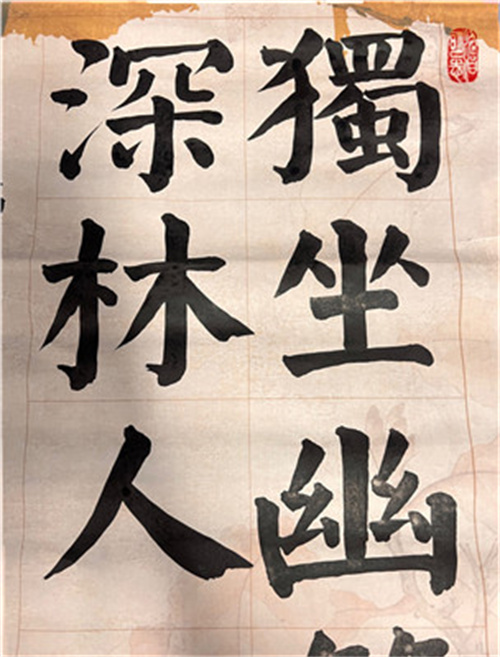 獨坐幽
深林人